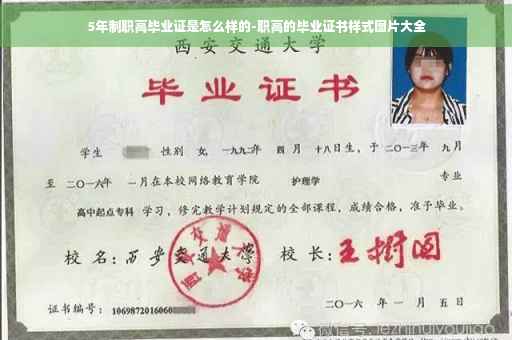 5年制职高毕业证是怎么样的-职高的毕业证书样式图片大全
西安交通大学
毕业证书
学生 性别 女，一九九二年 四月 十八日生，于 二〇一三年 九月
至 二〇一六年 一月在本校网络教育学院 护理学 专业
高中起点专科 学习，修完教学计划规定的全部课程，成绩合格，准予毕业。
校 名：西安交通大学 校 长：王树国
西安交通大学
证书编号：1069872016060
二〇一六 年 一 月 五 日
微信号: jiezhihuiyoujiao